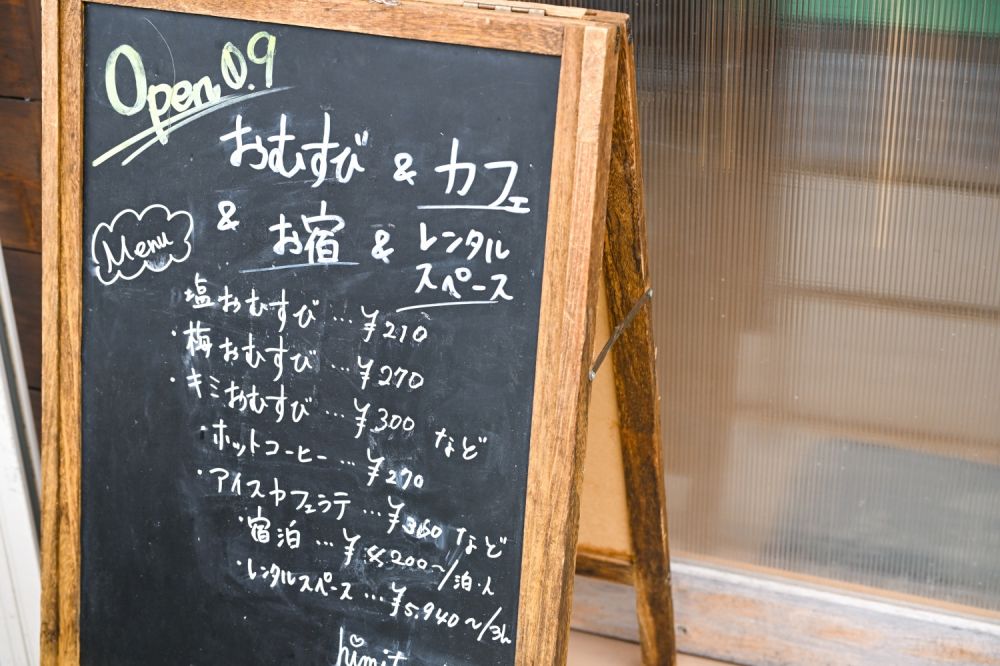 Open 0.9
おむすび & カフェ
& お宿 & レンタル
スペース
Menu
塩おむすび…¥210
・梅おむすび…¥270
・キミおむすび…¥300 など
・ホットコーヒー…¥270
・アイスカフェラテ…¥360 など
・宿泊…¥4,200〜/泊・人
・レンタルスペース…¥5,940〜/3h
himit